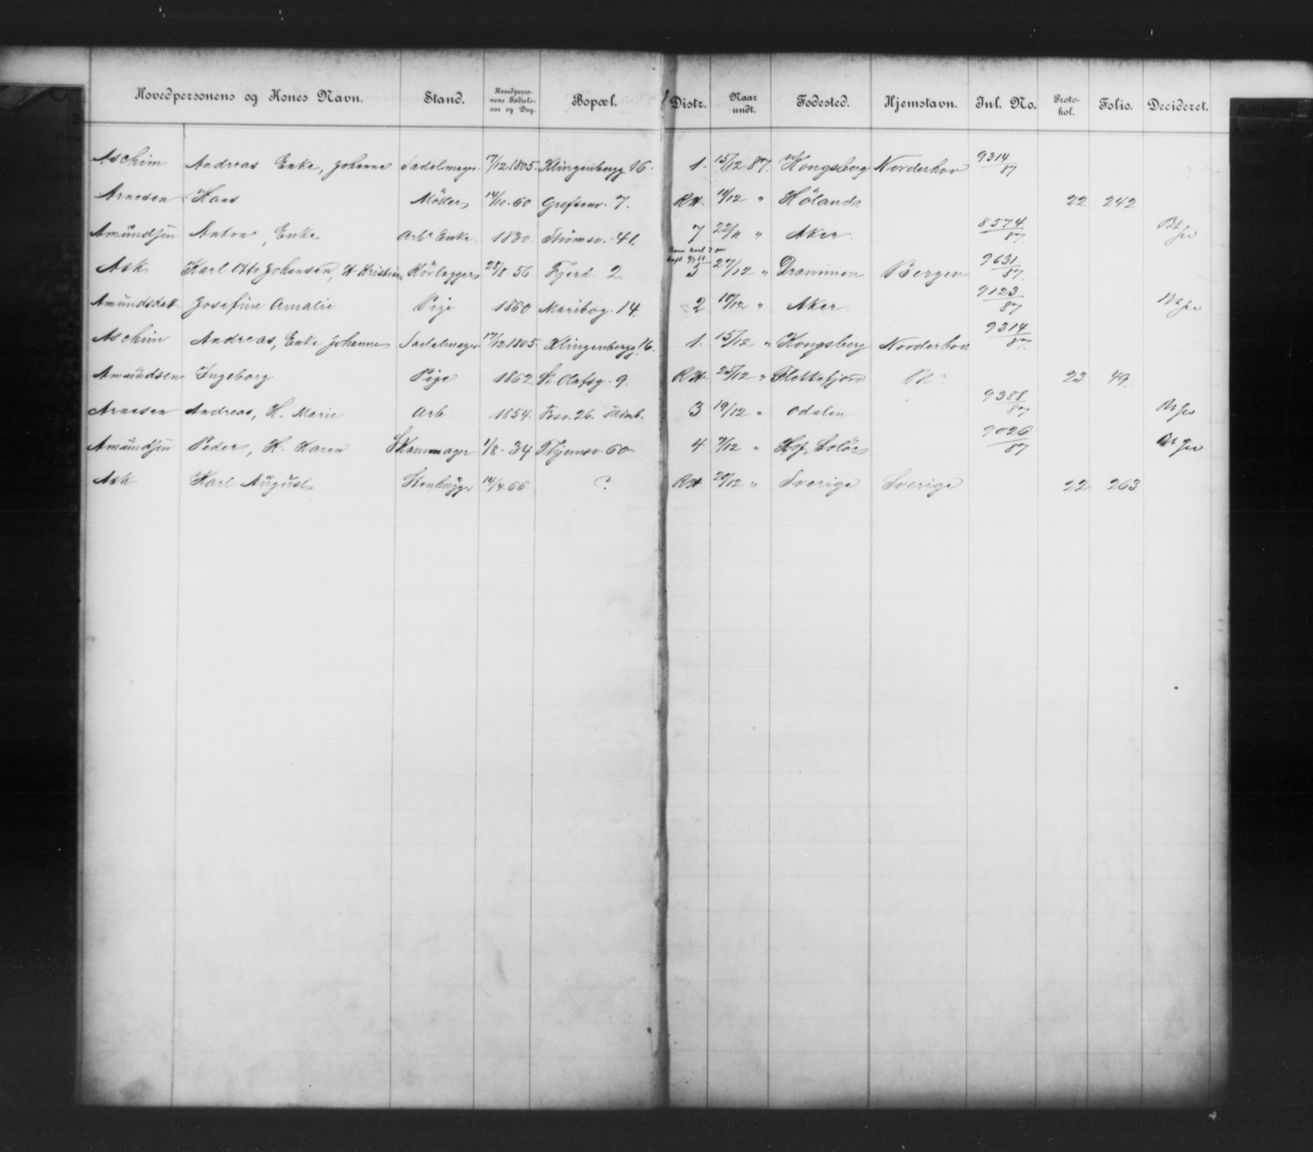 Hovedpersonens og Kones Navn. Stand. Hovedpersonens Fødselsaar og Dag. Bopæl. Distr. Naar undt. Fødested. Hjemstavn. Inl. No. Protokol. Folio. Decideret.
Aschim Andreas Enke, Johanne Sadelmager 17/12 1805. Klingenbergg 16. 1. 15/12 87. Kongsberg Norderhov 9314/87
Arnesen Hans Møller 14/10 60 Grefsenv. 7. RH. 14/12 " Høland 22 242
Amundsen Anton, Enke Arb. Enke. 1830. 41. 7 22/11 " Aker 8574/87
Ask Karl Otto Johansen, H. Kristine Rørlægger 28/8 56 Fjerd. 2 5 27/12 " Drammen Bergen 9631/87
Amundsdat. Josefine Amalie Pige 1860 Maribog. 14. 2 10/12 " Aker 9123/87
Aschim Andreas, Enke Johanne Sadelmager 17/12 1805 Klingenbergg. 16. 1. 15/12 " Kongsberg Norderhov 9314/87
Amundsen Ingeborg Pige 1862 St. Olafsg. 9. RH 25/12 " Flekkefjord 23 49
Arnesen Andreas, H. Marie Arb. 1854. 26. 3 19/12 " Odalen 9388/87
Amundsen Peder, H. Karen Skomager 1/8. 34 60 4 7/12 " Hof, Solør 9026/87
Ask Karl August Stenhugger 14/4 66 ? RH 20/12 " Sverige Sverige 22 263